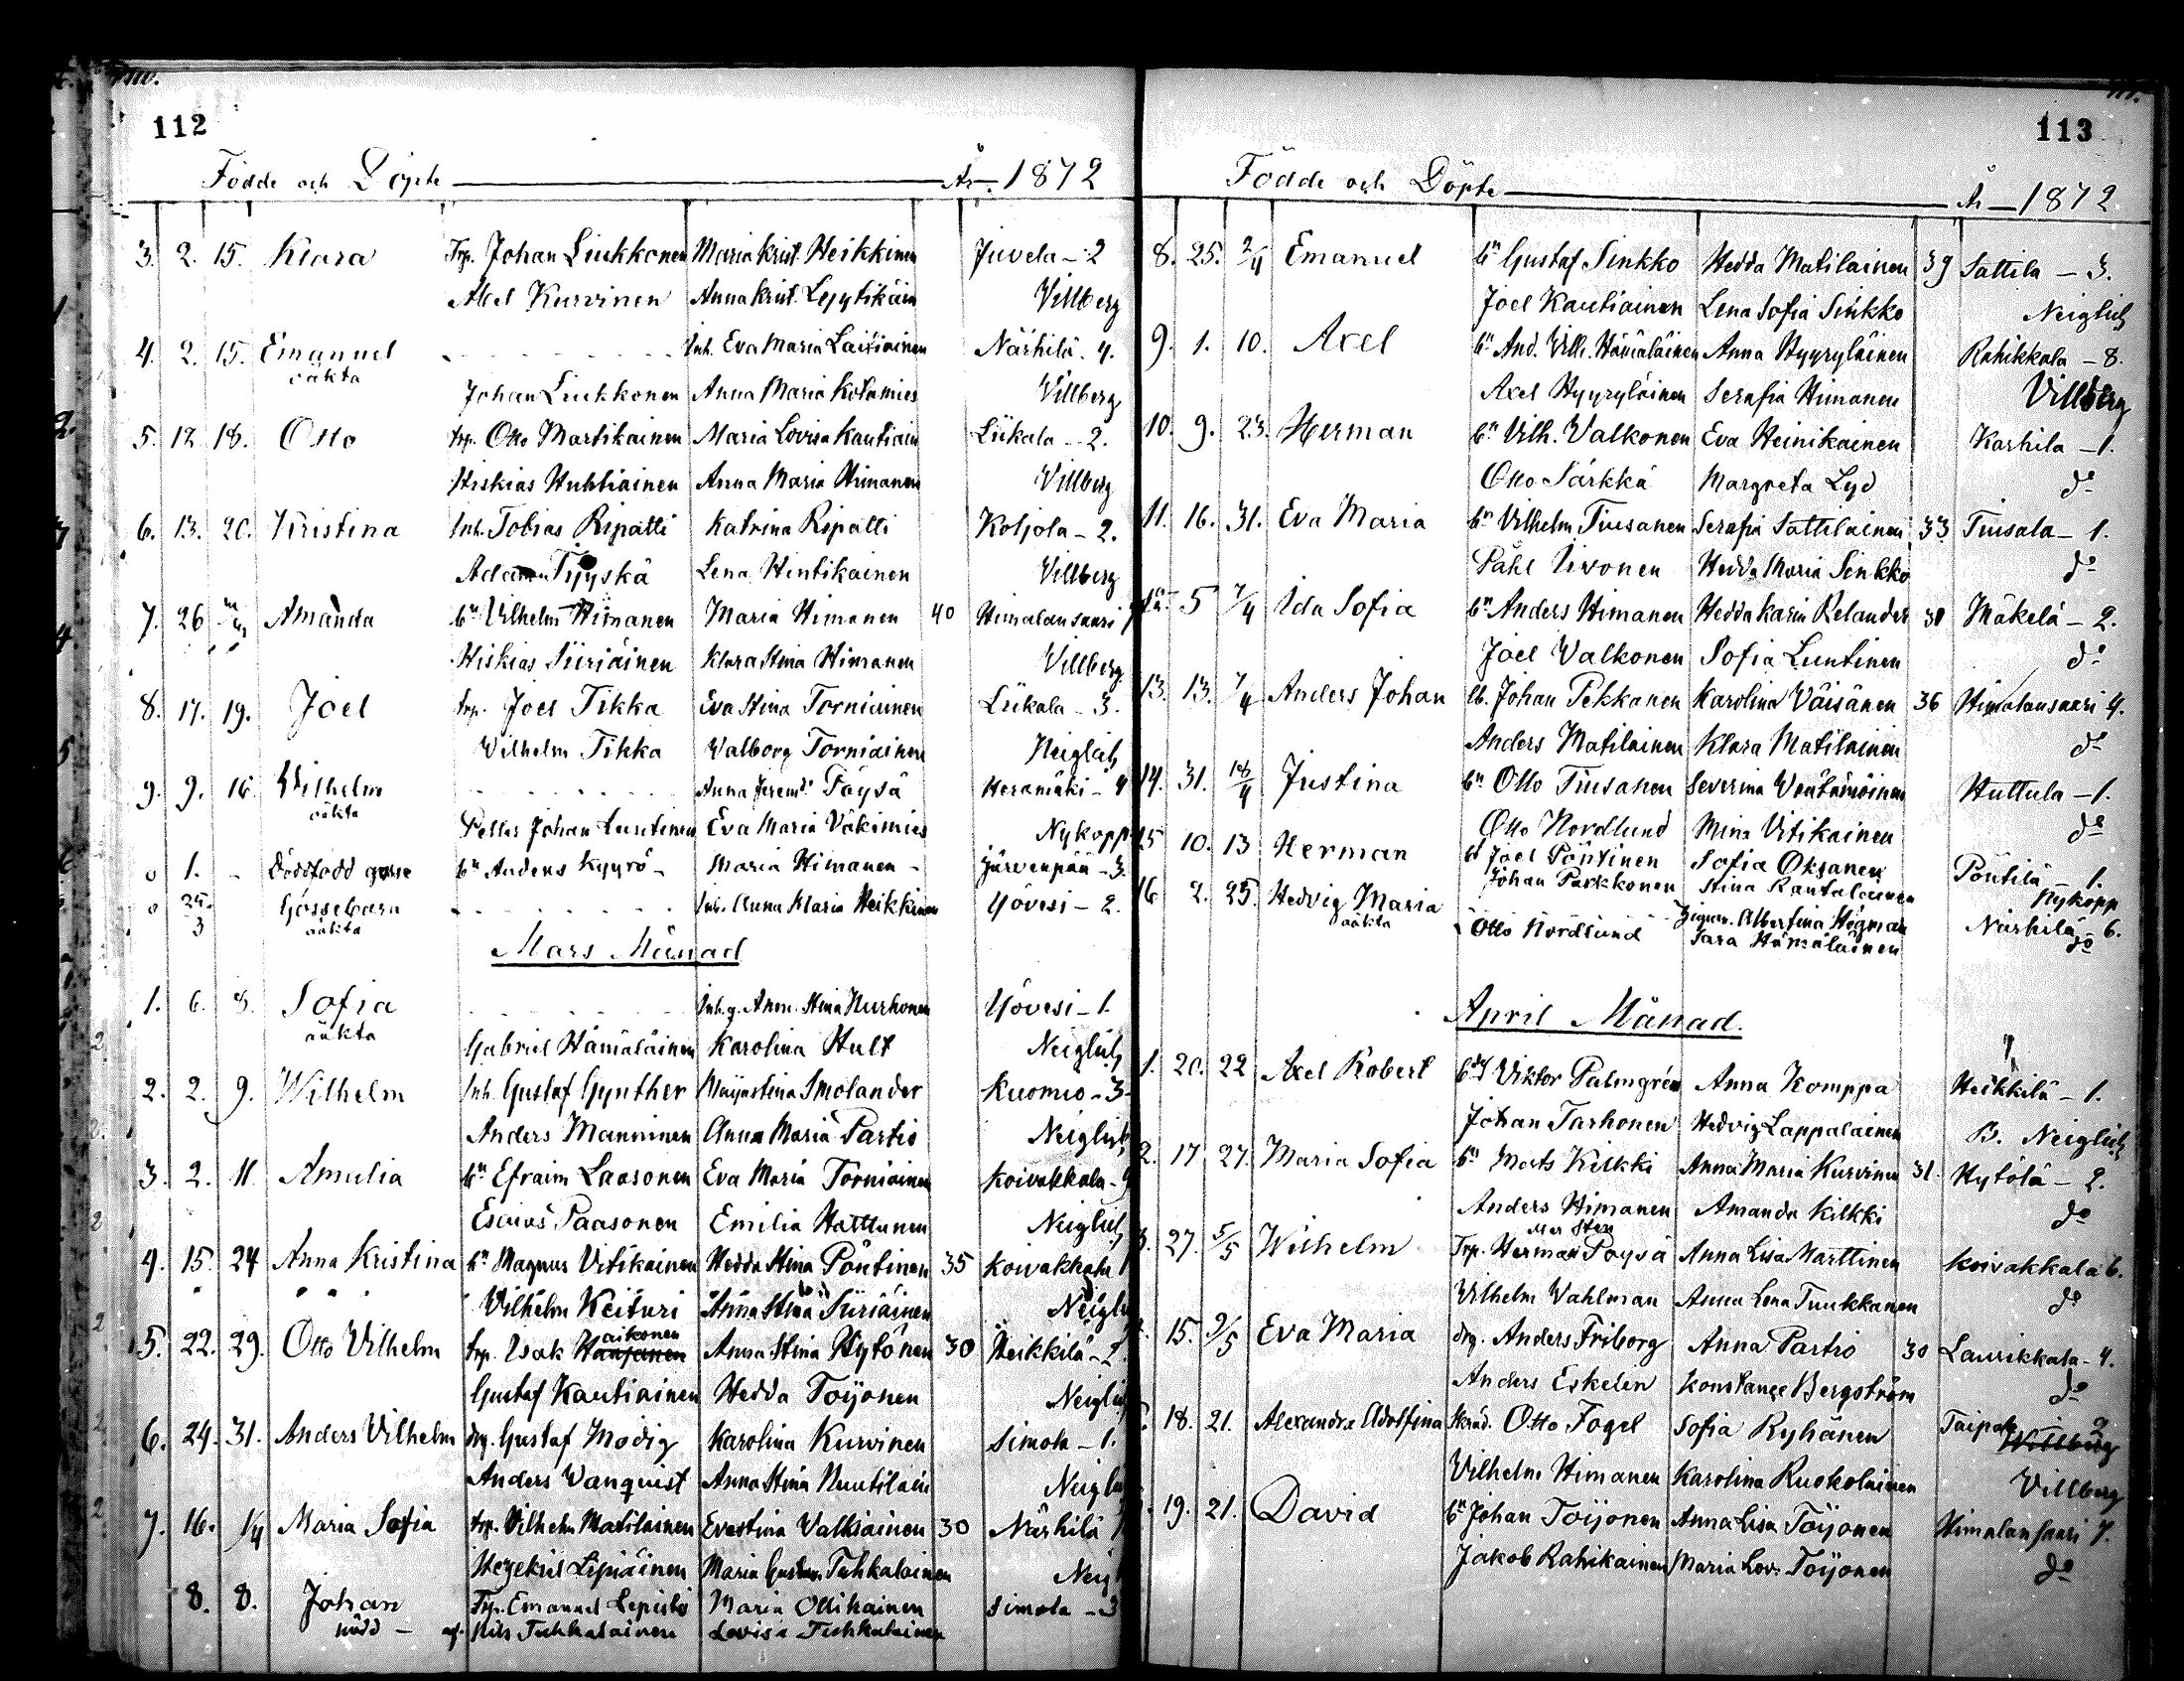 112
Födde och Döpte År 1872
3. 2. 15. Klara Trp. Johan Liukkonen Maria Krist. Heikkinen Juvela - 2
Abel Kurvinen Anna Krist. Leyytikäin Villberg
4. 2. 15. Emanuel Inh. Eva Maria Laitiainen Närhilä. 4.
oäkta Johan Liukkonen Anna Maria Kolamies Villberg
5. 12 18. Otto trp. Otto Martikainen Maria Lovisa Kautiain Liikala - 2.
Hiskias Huhtiainen Anna Maria Himanen Villberg
6. 13. 20. Kristina Inh. Tobias Ripatti Katrina Ripatti Koljola - 2.
Adam Lena Hintikainen Villberg
7. 26 Amanda bn Vilhelm Himanen Maria Himanen 40 Himalansaari
Hiskias Siiriäinen Klara Stina Himanen Villberg
8. 17. 19. Joel trp. Joel Tikka Eva Stina Torniainen Liikala - 3.
Wilhelm Tikka Walborg Torniainen Neiglick
9. 9. 16. Wilhelm Anna Jeremd. Töysä Heramäki - 4
oäkta Petter Johan Luntinen Eva Maria Väkimies Nykopp
0 1. - Dödfödd gosse bn Anders Kyyrö - Maria Himanen - Järvenpää - 3.
0 25. Gossebarn Inh. Anna Maria Heikkinen Yövesi - 2.
3 oäkta
Mars Månad
1. 6. 8. Sofia Inh. g. Anna Stina Nurhonen Yövesi - 1.
oäkta Gabriel Hämäläinen Karolina Hult Neiglick
2. 2. 9. Wilhelm Inh. Gustaf Gynther Maijastina Smolander Kuomio - 3
Anders Manninen Anna Maria Partio Neiglick
3. 2. 11. Amalia bn Efraim Laasonen Eva Maria Torniainen Koivakkala - 9
Esaias Paasonen Emilia Hattunen Neiglick
4. 15. 24 Anna Kristina bn Magnus Vitikainen Hedda Stina Pöntinen 35 Koivakkala
Vilhelm Keituri Anna Stina Siiriäinen Neiglick
5. 22. 29. Otto Vilhelm trp. Isak Anna Stina Hytönen 30 Heikkilä - 2.
Gustaf Kautiainen Hedda Toijonen Neiglick
6. 24. 31. Anders Vilhelm drg. Gustaf Modig Karolina Kurvinen Simola - 1.
Anders Wanquist Anna Stina Nuutilain Neiglick
7. 16. 1/4 Maria Sofia trp. Vilhelm Matilainen Evastina Valkiainen 30 Närhilä
Hezekiel Lipiäinen Maria Gustava Tuhkalainen
8. 8. Johan Trp. Emanuel Lepistö Maria Ollikainen Simola - 3
nödd - af. Nils Tuhkalainen Lovisa Tuhkalainen
113
Födde och Döpte År 1872
8. 25. 2/4 Emanuel bn Gustaf Sinkko Hedda Matilainen 39 Sattila - 3.
Joel Kautiainen Lena Sofia Sinkko Neiglick
9. 1. 10. Axel bn And. Vilh. Hämäläinen Anna Hyyryläinen Rahikkala - 8.
Axel Hyyryläinen Serafia Himanen Villberg
10. 9. 23. Herman bn Vilh. Valkonen Eva Heinikainen Karhila - 1.
Otto Särkkä Margreta Lyd do
11. 16. 31. Eva Maria bn Vilhelm Tiusanen Serafia Sattilainen 33 Tiusala - 1.
Påhl Uvonen Hedda Maria Sinkko do
12. 5 7/4 Ida Sofia bn Anders Himanen Hedda Karin Relander 30 Mäkelä - 2.
Joel Valkonen Sofia Luntinen do
13. 13. 7/4 Anders Johan lb. Johan Pekkanen Karolina Väisänen 36 Himalansaari 4.
Anders Matilainen Klara Matilainen do
14. 31. 18/4 Justina bn Otto Tiusanen Severina Huttula - 1.
Otto Nordlund Mina Vitikainen do
15 10. 13 Herman bn Joel Pöntinen Sofia Oksanen Pöntilä - 1.
Johan Parkkonen Stina Rantalainen Nykopp
16 2. 25. Hedvig Maria Zigen. Albertina Högman Närhilä - 6.
oäkta Otto Nordlund Sara Hämäläinen do
April Månad.
1. 20. 22 Axel Robert Viktor Palmgrén Anna Komppa Heikkilä - 1.
Johan Tarhonen Hedvig Lappalainen B. Neiglick
2. 17 27. Maria Sofia bn Mats Kilkki Anna Maria Kurvinen 31. Hytölä - 2.
Anders Himanen Amanda Kilkki do
3. 27. 5/5 Wilhelm Trp. Herman Poysä Anna Lisa Marttinen Koivakkala 6.
Vilhelm Vahlman Anna Lena Tuukkanen do
15. 9/5 Eva Maria drg. Anders Friborg Anna Partio 30 Laurikkala - 4.
Anders Eskelin Konstange Bergström do
18. 21. Alexandra Adolfina Skräd. Otto Fogel Sofia Ryhänen Taipale
Vilhelm Himanen Karolina Ruokolainen Villberg
19. 21. David bn Johan Toijonen Anna Lisa Toijonen Himalansaari 7.
Jakob Rahikainen Maria Lovs. Toijonen do